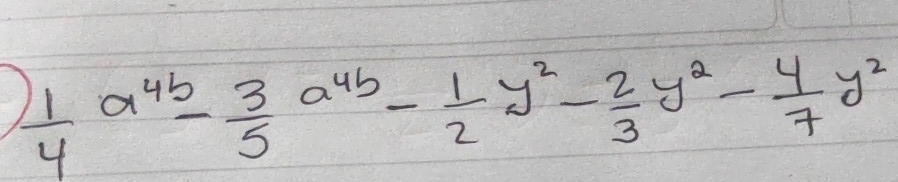 ) 1/4 a^{4b} - 3/5 a^{4b} - 1/2 y² - 2/3 y² - 4/7 y²